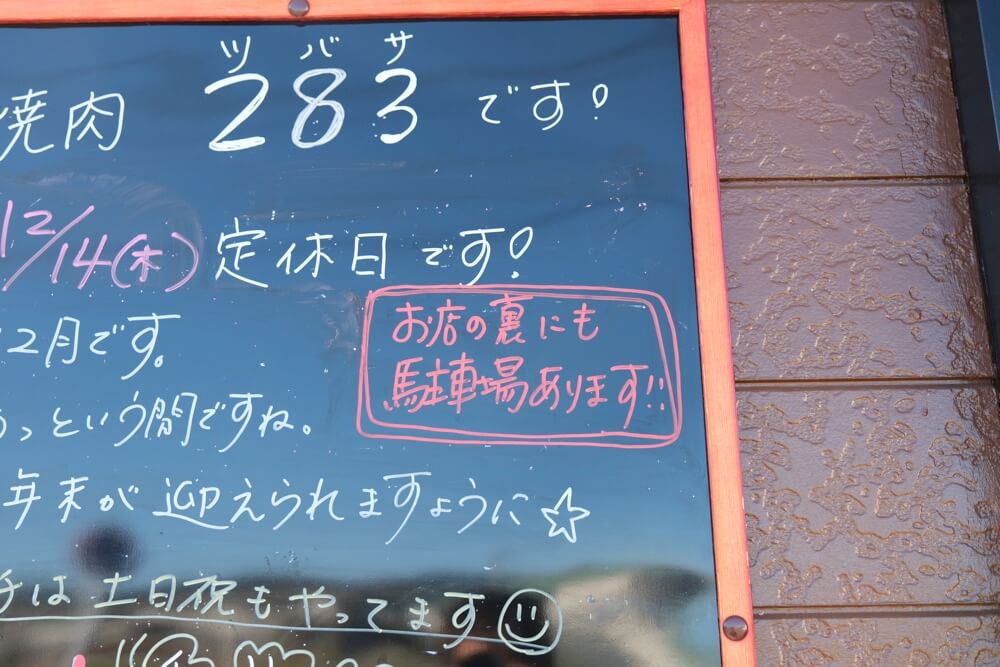 ツバサ
焼肉 283 です!
12/14(木) 定休日です!
お店の裏にも
駐車場あります!!
2月です。
っという間ですね。
年末が迎えられますように☆
は土日祝もやってます